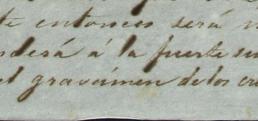 te entonces será
derá á la fuerte
el gravamen de los